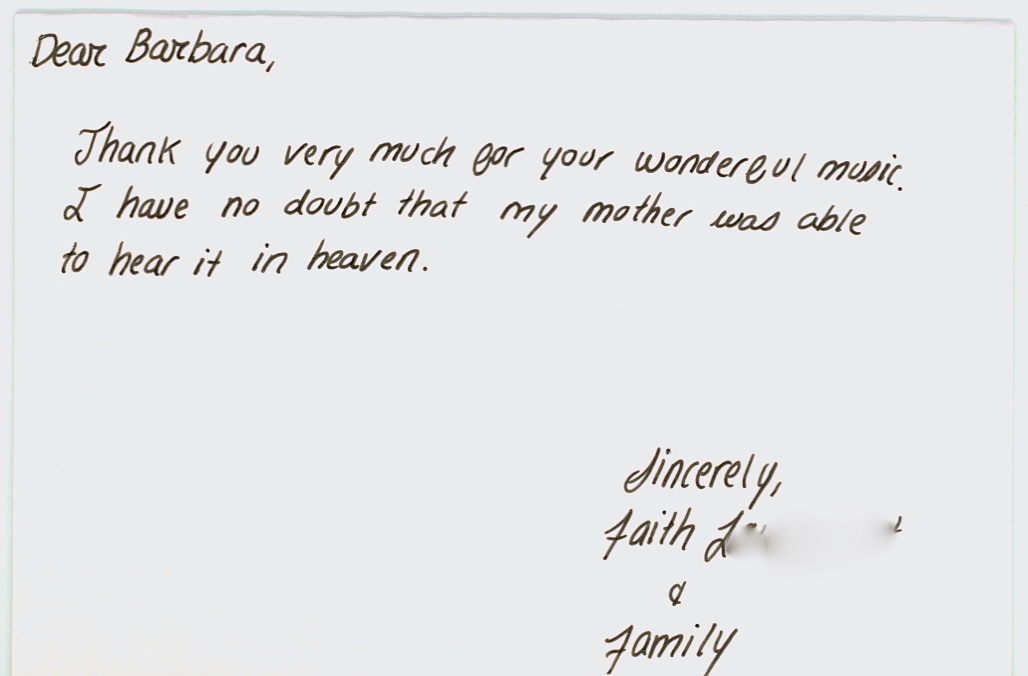 Dear Barbara,
Thank you very much for your wonderful music.
I have no doubt that my mother was able
to hear it in heaven.
Sincerely,
Faith
&
Family